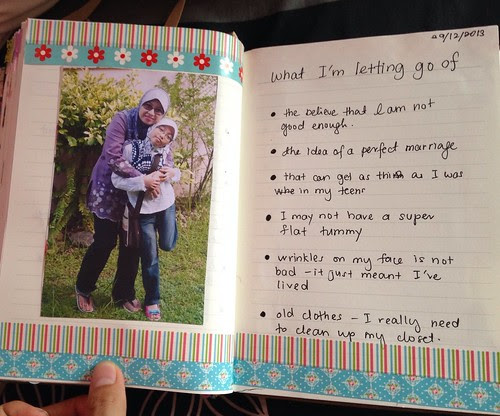 29/12/2013
what I'm letting go of
• the believe that I am not
good enough.
• the Idea of a perfect marriage
• that can get as thin as I was
in my teens
• I may not have a super
flat tummy
• wrinkles on my face is not
bad - it just meant I've
lived
• old clothes - I really need
to clean up my closet.